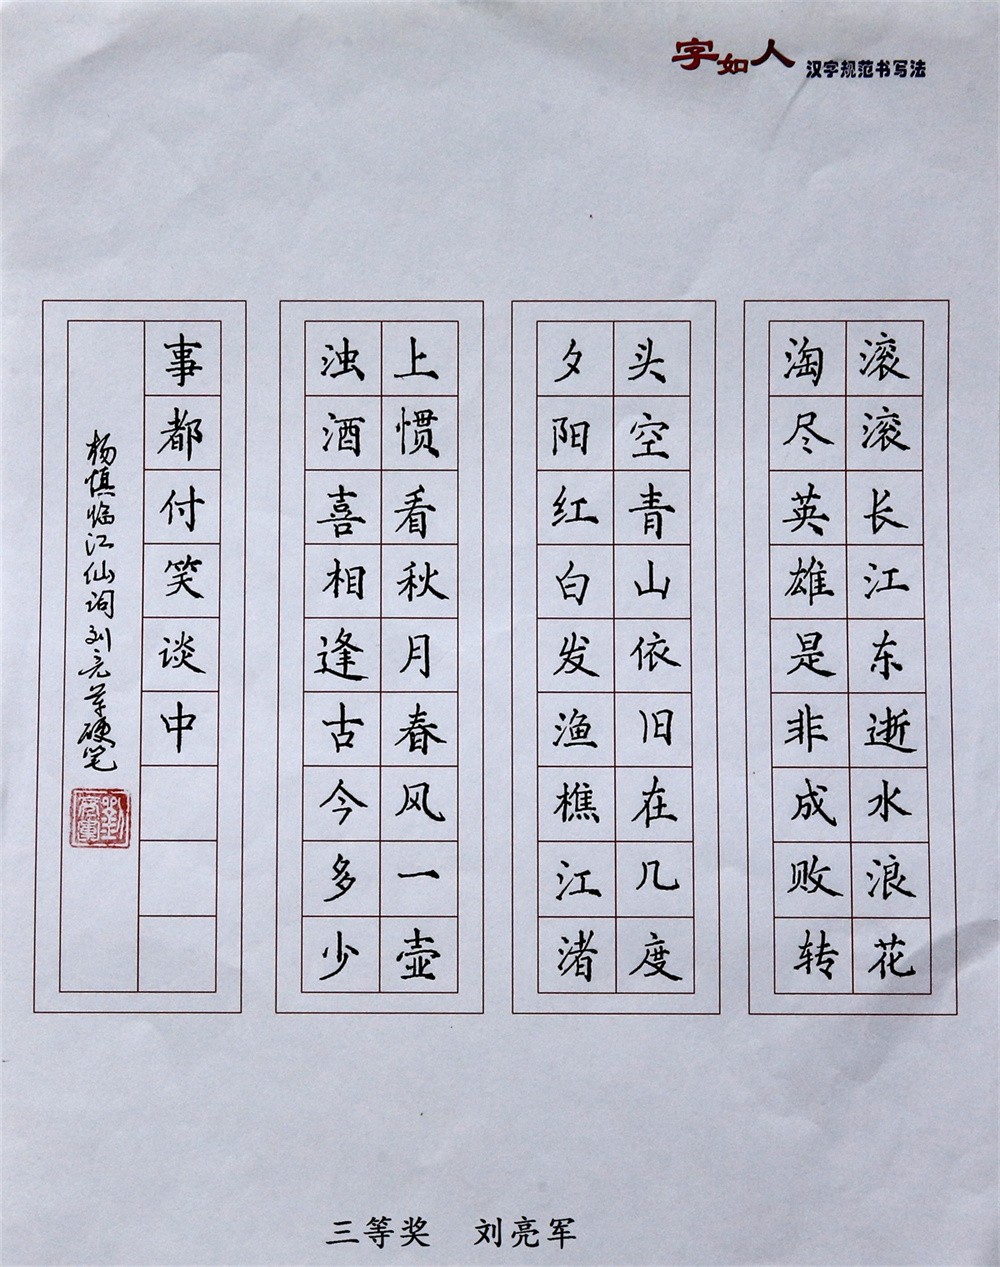 字如人 汉字规范书写法
滚滚长江东逝水浪花
淘尽英雄是非成败转
头空青山依旧在几度
夕阳红白发渔樵江渚
上惯看秋月春风一壶
浊酒喜相逢古今多少
事都付笑谈中
杨慎临江仙词刘亮军硬笔
三等奖 刘亮军